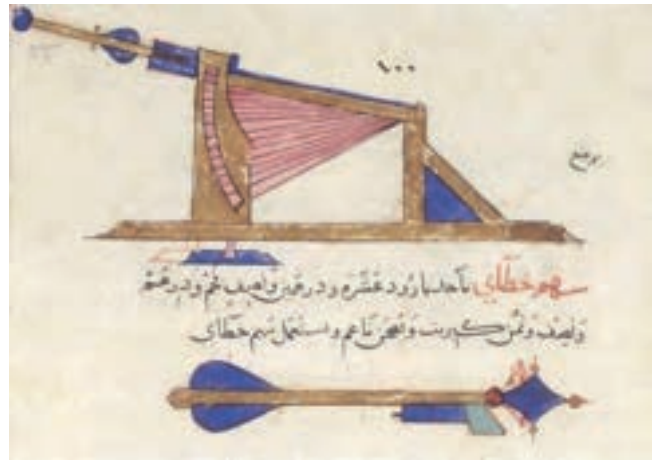 ١٠٠
موضع
سهم خطاي تأخذ بارود عشره ودرهمين ونصف فحم ودرهم
ونصف وثمن كبريت وتسحق ناعم وتستعمل سهم خطاي